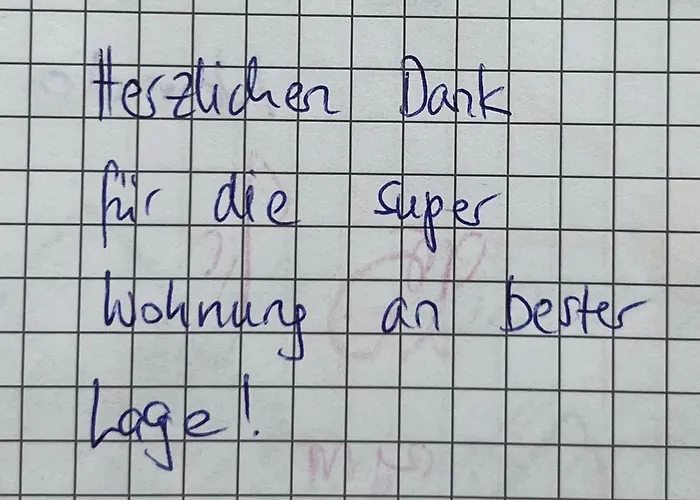 Herzlichen Dank
für die super
Wohnung an bester
Lage!